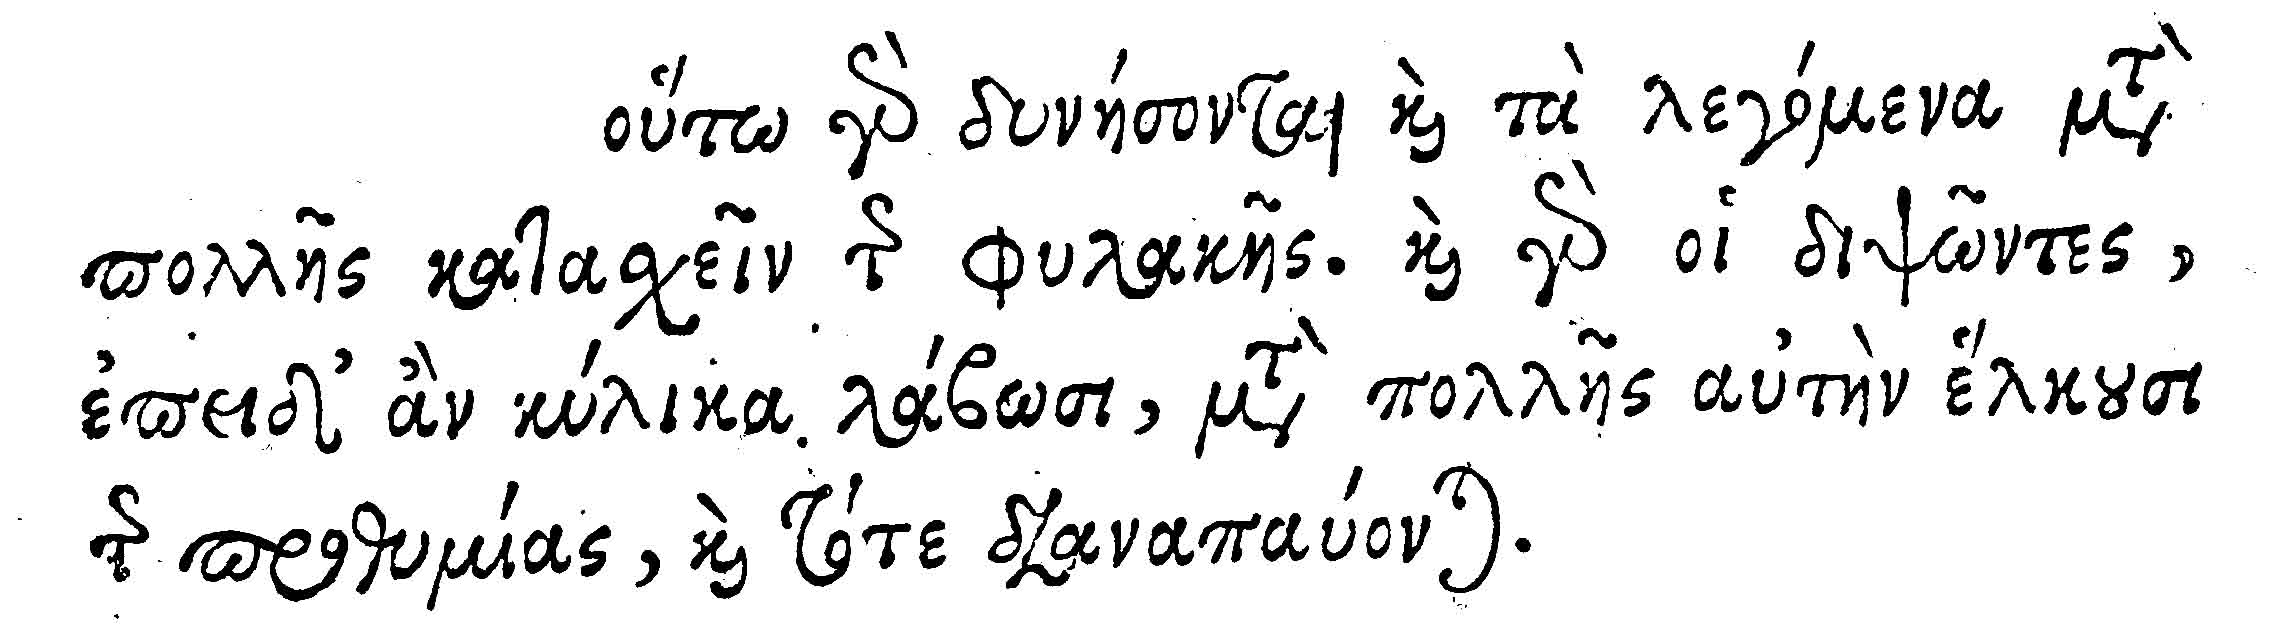 οὕτω γὰρ δυνήσονται καὶ τὰ λεγόμενα μετὰ
πολλῆς κατασχεῖν τῆς φυλακῆς. καὶ γὰρ οἱ διψῶντες,
ἐπειδ' ἂν κύλικα λάβωσι, μετὰ πολλῆς αὐτὴν ἕλκουσι
τῆς προθυμίας, καὶ τότε διαναπαύονται.